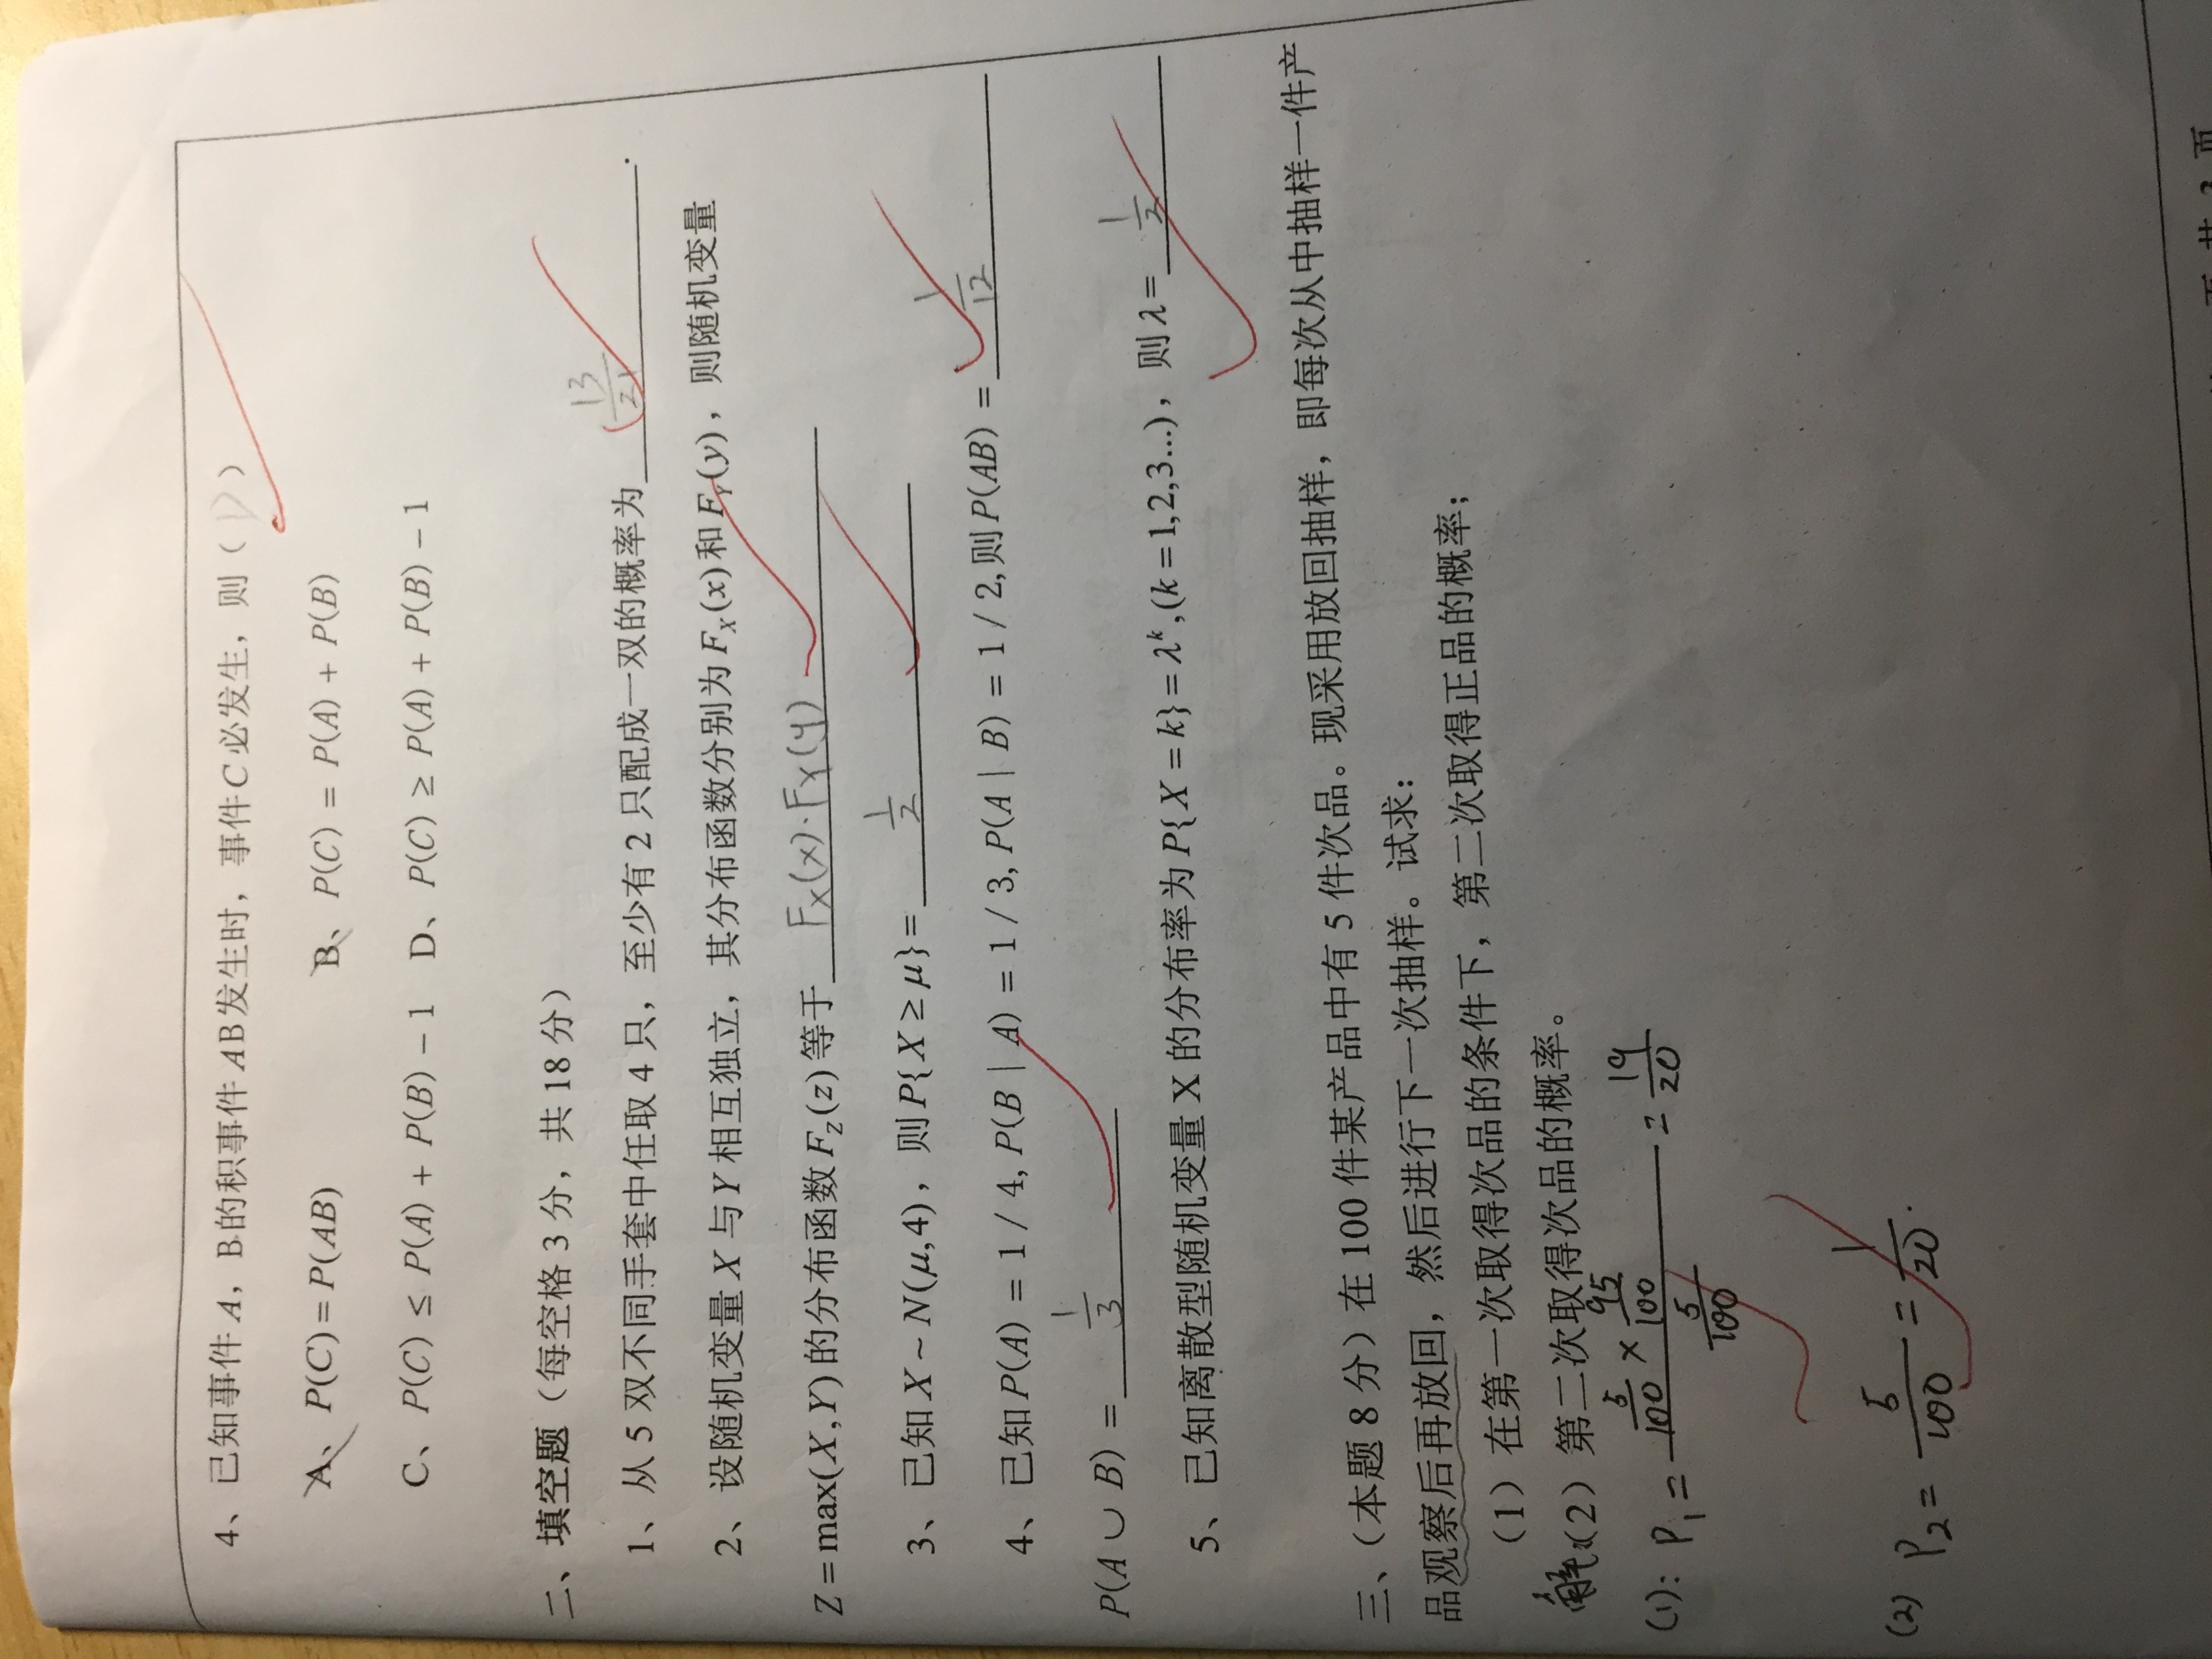 4、已知事件 A，B的积事件 AB发生时，事件C 必发生，则（ D ）
A、 P(C) = P(AB) B、 P(C) = P(A) + P(B)
C、 P(C) ≤ P(A) + P(B) − 1 D、 P(C) ≥ P(A) + P(B) − 1
二、填空题（每空格 3 分，共 18 分）
1、从 5 双不同手套中任取 4 只，至少有 2 只配成一双的概率为 13/21 .
2、设随机变量 X 与 Y 相互独立，其分布函数分别为 F_X(x) 和 F_Y(y)，则随机变量
Z = max(X,Y) 的分布函数 F_Z(z) 等于 F_X(x)·F_Y(y)
3、已知 X ~ N(μ,4)，则 P{X ≥ μ} = 1/2
4、已知 P(A) = 1 / 4, P(B | A) = 1 / 3, P(A | B) = 1 / 2,则 P(AB) = 1/12
P(A ∪ B) = 1/3
5、已知离散型随机变量 X 的分布率为 P{X = k} = λ^k,(k = 1,2,3...)，则 λ = 1/2
三、（本题 8 分）在 100 件某产品中有 5 件次品。现采用放回抽样，即每次从中抽样一件产
品观察后再放回，然后进行下一次抽样。试求：
（1）在第一次取得次品的条件下，第二次取得正品的概率；
解:（2）第二次取得次品的概率。
(1): P₁ = (5/100 × 95/100) / (5/100) = 19/20
(2) P₂ = 5/100 = 1/20.